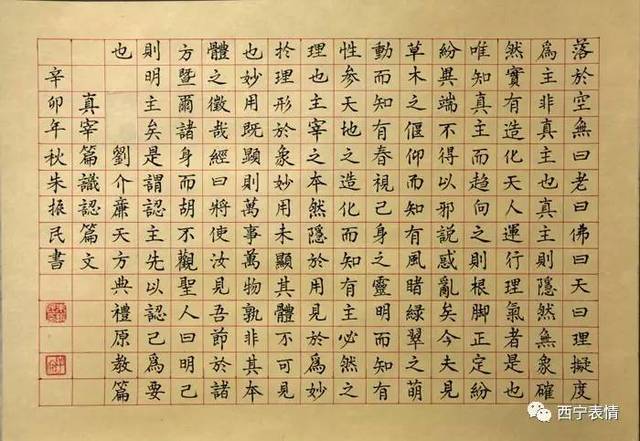 落於空無曰老曰佛曰天曰理擬度
為主非真主也真主則隱然無象確
然實有造化天人運行理氣者是也
唯知真主而趨向之則根脚正定紛
紛異端不得以邪說惑亂矣今夫見
草木之偃仰而知有風睹綠翠之萌
動而知有春視己身之靈明而知有
性參天地之造化而知有主必然之
理也主宰之本然隱於用見於為妙
於理形於象妙用未顯其體不可見
也妙用既顯則萬事萬物孰非其本
體之徵哉經曰將使汝見吾節於諸
方暨爾諸身而胡不觀聖人曰明己
則明主矣是謂認主先以認己為要
也 劉介廉天方典禮原教篇
真宰篇識認篇文
辛卯年秋朱振民書
西宁表情